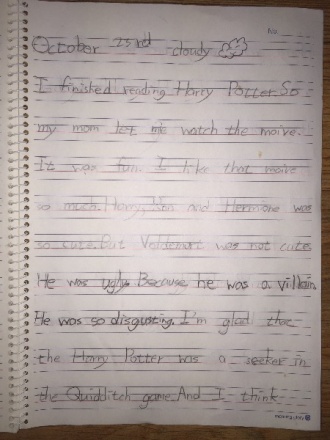 No
October 25rd cloudy
I finished reading Harry Potter.So
my mom let me watch the moive.
It was fun. I like that moive
so much.Harry, Ron and Hermione was
so cute.But Voldemart was not cute.
He was ugly. Because he was a villain.
He was so disgusting. I'm glad that
the Harry Potter was a seeker in
the Quidditch game.And I think